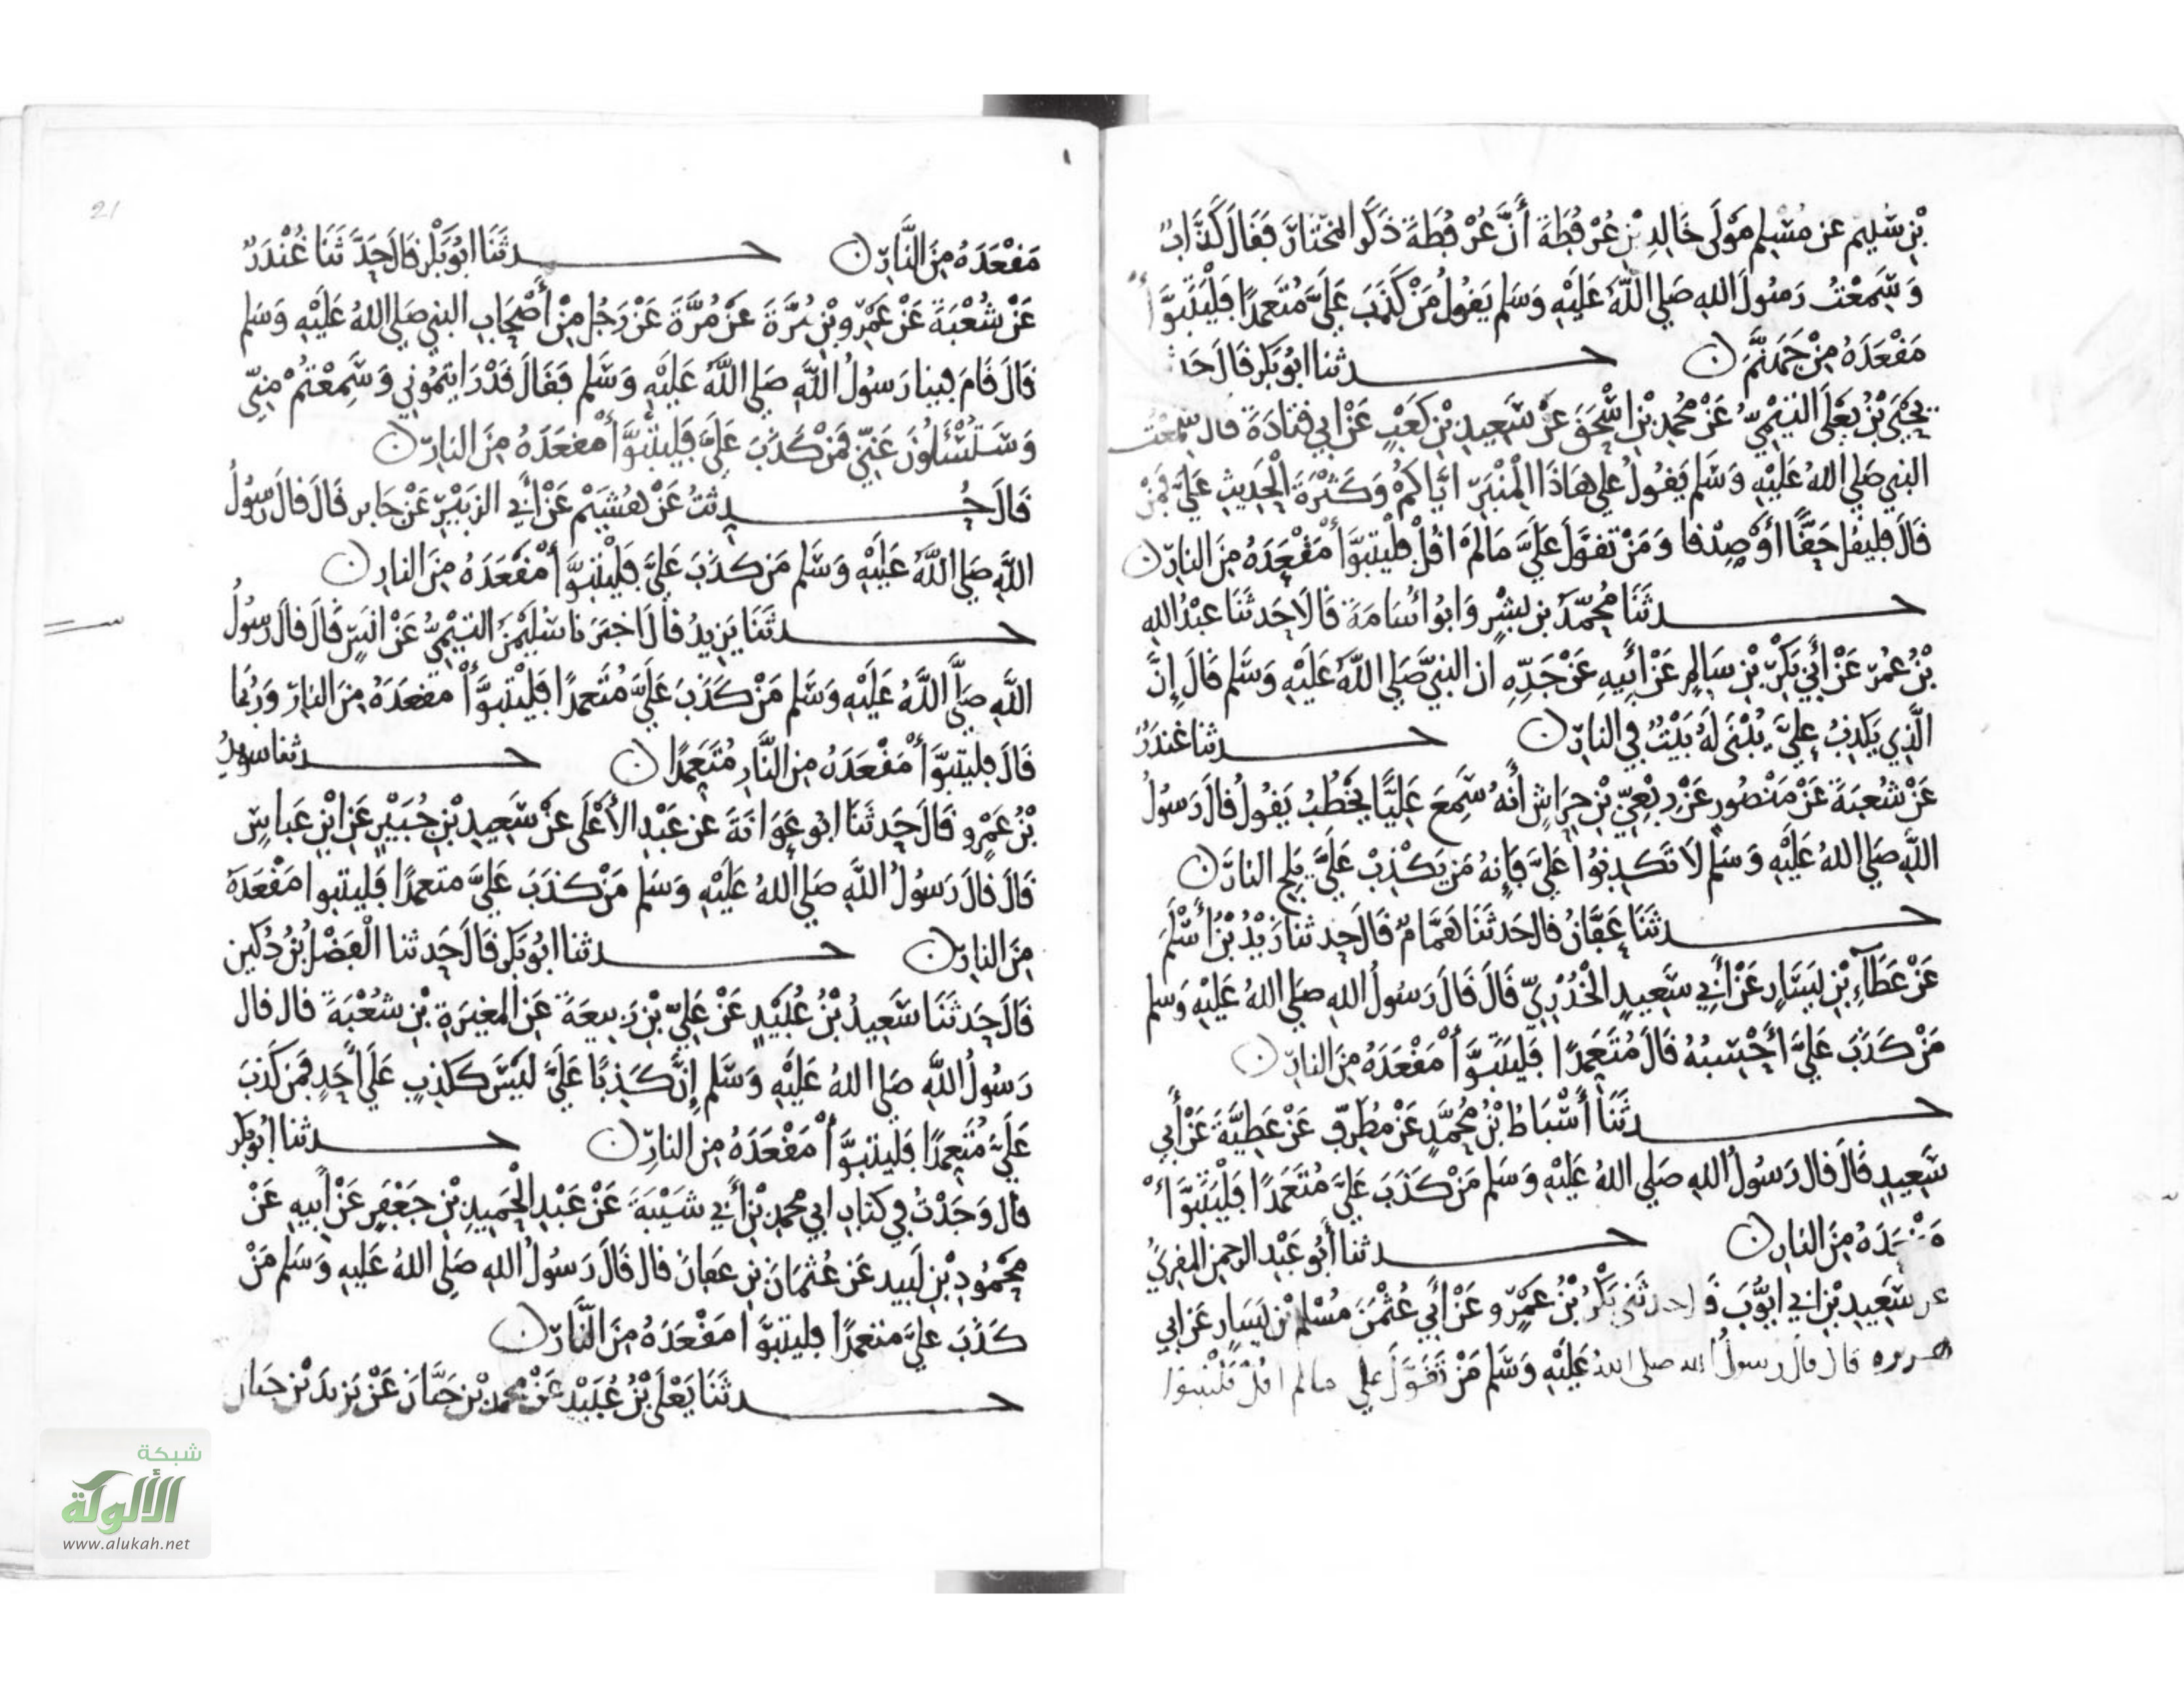 بْنِ سُلَيْمٍ عَنْ مُسْلِمٍ مَوْلَى خَالِدِ بْنِ عُرْفُطَةَ أَنَّ عُرْفُطَةَ ذَكَرَ الْمُخْتَارَ فَقَالَ كَذَّابٌ
وَسَمِعْتُ رَسُولَ اللهِ صَلى اللهُ عَلَيْهِ وَسَلم يَقُولُ مَنْ كَذَبَ عَلَيَّ مُتَعَمِدًا فَلْيَتَبَوَّأْ
مَقْعَدَهُ مِنْ جَهَنَّمَ ن حدثنا ابُو بَكر قَالَ حَدثنا
يَحْيَى بْنُ يَعْلَى التَيْمِيُّ عَنْ مُحمدِ بْنِ اسْحَقَ عَنْ سَعِيدِ بْنِ كَعْبٍ عَنْ ابِي قتَادَةَ قال سَمِعْتُ
النبي صَلى اللهُ عَلَيْهِ وَسَلم يَقُولُ على هَاذَا الْمِنْبَرِ ايَّاكمْ وَكَثْرَةَ الْحَدِيثِ عَلَيَّ فَمَنْ
قَالَ فليقل حَقًّا أَوْ صِدْقا وَمَنْ تقَوَّلَ عَلَيَّ مَالم اقُلْ فلْيَتبَوَّأْ مَقْعَدَهُ مِنَ النارِ ن
حدثَنَا مُحَمَّدُ بن بِشْرٍ وَابُو اسَامَةَ قَالَا حَدثَنَا عبْدُ الله
بْنُ عُمَرَ عَنْ أَبِي بَكْرِ بْنِ سَالِمٍ عَنْ أَبِيهِ عَنْ جَدِّهِ ان النبيَّ صَلى اللهُ عَلَيْهِ وَسَلم قَالَ إِنَّ
الَّذِي يَكذِبُ عَلَيَّ يُبْنَى لَهُ بَيْتٌ فِي النارِ ن حدثنا غُندَرٌ
عَنْ شُعْبَةَ عَنْ مَنْصُورٍ عَنْ رِبْعِيِّ بْنِ حِرَاشٍ أَنَّهُ سَمِعَ عَلِيًّا يَخْطُبُ يَقُولُ قالَ رَسُولُ
اللهِ صَلى اللهُ عَلَيْهِ وَسَلم لَا تَكذِبُوا عَلَيَّ فَإنهُ مَن يَكْذِبْ عَلَيَّ يَلِجِ النَارَ ن
حدثَنَا عَفَّانُ قال حَدثَنَا هَمَّامٌ قَالَ حَدثنا زَيْدُ بْنُ أَسْلَمَ
عَنْ عَطَآءِ بْنِ يَسَارٍ عَنْ أَبِي سَعِيدٍ الْخُدْرِيِّ قَالَ قَالَ رَسُولُ اللهِ صَلى اللهُ عَلَيْهِ وَسلم
مَنْ كَذَبَ عَلَيَّ أَحْسِبُهُ قَالَ مُتَعَمِدًا فَليَتَبَوَّأْ مَقْعَدَهُ مِنَ النارِ ن
حدثَنَا أَسْبَاطُ بْنُ مُحَمَّدٍ عَنْ مُطَرِّفٍ عَنْ عَطِيَّةَ عَنْ أَبِي
سَعِيدٍ قَالَ قال رَسُولُ اللهِ صَلى اللهُ عَلَيْهِ وَسَلم مَنْ كَذَبَ عَلَيَّ مُتَعَمدًا فَلْيَتَبَوَّأْ
مَقْعَدَهُ مِنَ النارِ ن حدثنا أَبُو عَبْدِ الرحمن المقرئُ
عن سَعِيدِ بْنِ ابي ايُّوبَ قال حدثَنِي بَكْرُ بْنُ عَمْرٍو عَنْ أَبِي عُثْمَنَ مُسْلِم بْنِ يَسَارٍ عَن ابي
هريره قال قال رسولُ الله صلى اللهُ عَلَيْهِ وَسَلم مَنْ تَقَوَّلَ علي مالم اقُلْ فَلْيتبوا
21
مَقْعَدَهُ مِنَ النَّارِ ن حدثَنَا ابُو بَكْرٍ قالَ حَدَّثَنَا غُنْدَرٌ
عَنْ شُعْبَةَ عَنْ عَمْرِو بْنِ مُرَّةَ عَنْ مُرَّةَ عَنْ رَجُلٍ مِنْ أَصْحَابِ النبي صَلى اللهُ عَلَيْهِ وَسَلم
قَالَ قَامَ فِينا رَسُولُ اللَّهِ صَلى اللَّهُ عَلَيْهِ وَسَلم فَقَالَ قَدْ رَايتمُوني وَسَمِعْتُمْ مِنِّي
وَسَتُسْئَلُونَ عَنِّي فَمَنْ كَذَبَ عَلَيَّ فَلْيتَبَوَّأْ مقعَدَهُ مِنَ النارِ ن
قَالَ حُدِثتُ عَنْ هُشَيْمٍ عَنْ أَبي الزبَيْرِ عَنْ جَابرٍ قَالَ قالَ رَسُولُ
اللَّهِ صَلى اللَّهُ عَلَيْهِ وَسَلم مَن كذَبَ عَلَيَّ فَلْيَتَبَوَّأْ مَقْعَدَهُ مِنَ النارِ ن
حدثَنَا يَزِيدُ قَالَ اخبَرَنا سُلَيْمَنُ التيْمِيُّ عَنْ انَسٍ قَالَ قالَ رَسُولُ
اللَّهِ صَلَّى اللَّهُ عَلَيْهِ وَسَلم مَنْ كَذَبَ عَلَيَّ مُتَعمدًا فَليْتَبَوَّأْ مقعَدَهُ مِنَ النارِ وَرُبَمَا
قَالَ فليتَبَوَّأْ مَقْعَدَهُ مِن النَّارِ مُتَعَمِدًا ن حدثنا سويدُ
بْنُ عَمْرٍو قَالَ حَدثَنَا ابُو عَوَانَةَ عن عَبْدِ الأَعْلَى عَنْ سَعِيدِ بْنِ جُبَيْرٍ عَنِ ابْنِ عَباسٍ
قَالَ قالَ رَسُولُ اللَّهِ صَلى اللهُ عَلَيْهِ وَسَلم مَنْ كذَبَ عَلَيَّ متعمدًا فَليتَبوا مَقْعَدَهُ
مِنَ النارِ ن حدثنا ابُو بَكر قَالَ حَدثنا الْفَضْلُ بْنُ دُكَين
قَالَ حَدثَنَا سَعِيدُ بْنُ عُبَيْدٍ عَنْ عَلِيِّ بْنِ رَبِيعَةَ عَنِ الْمغِيرَةِ بْنِ شُعْبَةَ قال قال
رَسُولُ اللَّهِ صَلى اللهُ عَلَيْهِ وَسَلم إِنَّ كَذِبًا عَلَيَّ لَيْسَ كَكَذِبٍ عَلَى أَحَدٍ فَمَن كَذَبَ
عَلَيَّ مُتَعمِدًا فَليتبَوَّأْ مَقْعَدَهُ مِن النارِ ن حدثنا ابُو بكر
قَال وَجَدْتُ فِي كتَابِ ابي محمد بْنِ أَبي شَيْبَةَ عَنْ عَبْدِ الْحَمِيدِ بْنِ جَعْفَرٍ عَنْ أَبِيهِ عَنْ
مَحْمُودِ بْنِ لَبِيد عَن عُثْمَانَ بن عفانَ قال قَالَ رَسُولُ اللهِ صَلى اللهُ عَلَيهِ وَسَلم مَنْ
كَذَبَ عَلَيَّ متعمدًا فليتبَوَّا مَقْعَدَهُ مِنَ النَّارِ ن
حدثَنَا يَعْلَى بْنُ عُبَيْدٍ عَنْ محمد بْن حَيَّانَ عَنْ يَزيدَ بْن حَيان
شبكة
الألوكة
www.alukah.net